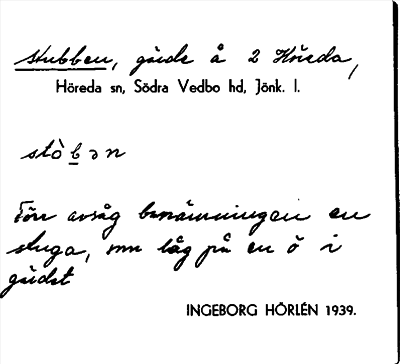 Stubben, gärde å 2 Höreda,
Höreda sn, Södra Vedbo hd, Jönk. l.
stòbən
Förr avsåg benämningen en
stuga, som låg på en ö i
gärdet
INGEBORG HÖRLÉN 1939.